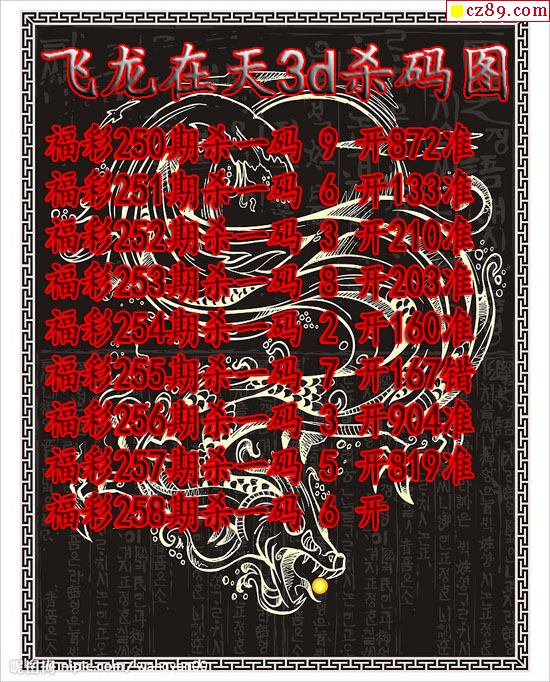 cz89.com
飞龙在天3d杀码图
福彩250期杀一码 9 开872准
福彩251期杀一码 6 开133准
福彩252期杀一码 3 开210准
福彩253期杀一码 8 开203准
福彩254期杀一码 2 开160准
福彩255期杀一码 7 开167错
福彩256期杀一码 3 开904准
福彩257期杀一码 5 开819准
福彩258期杀一码 6 开